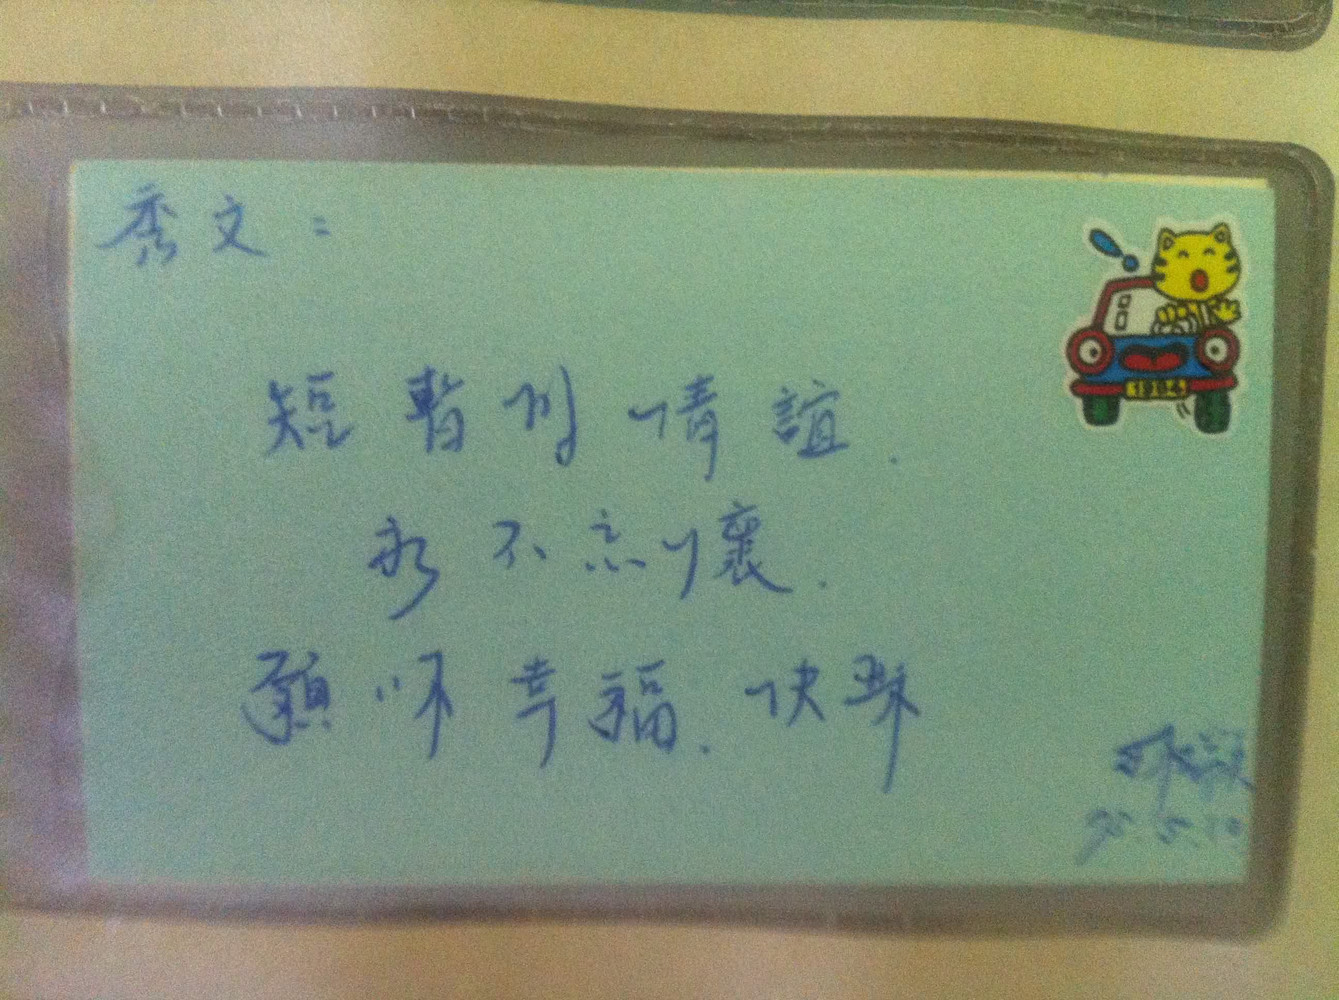 秀文：
1984
短暫的情誼．
永不忘懷．
願妳幸福．快樂
95.5.10